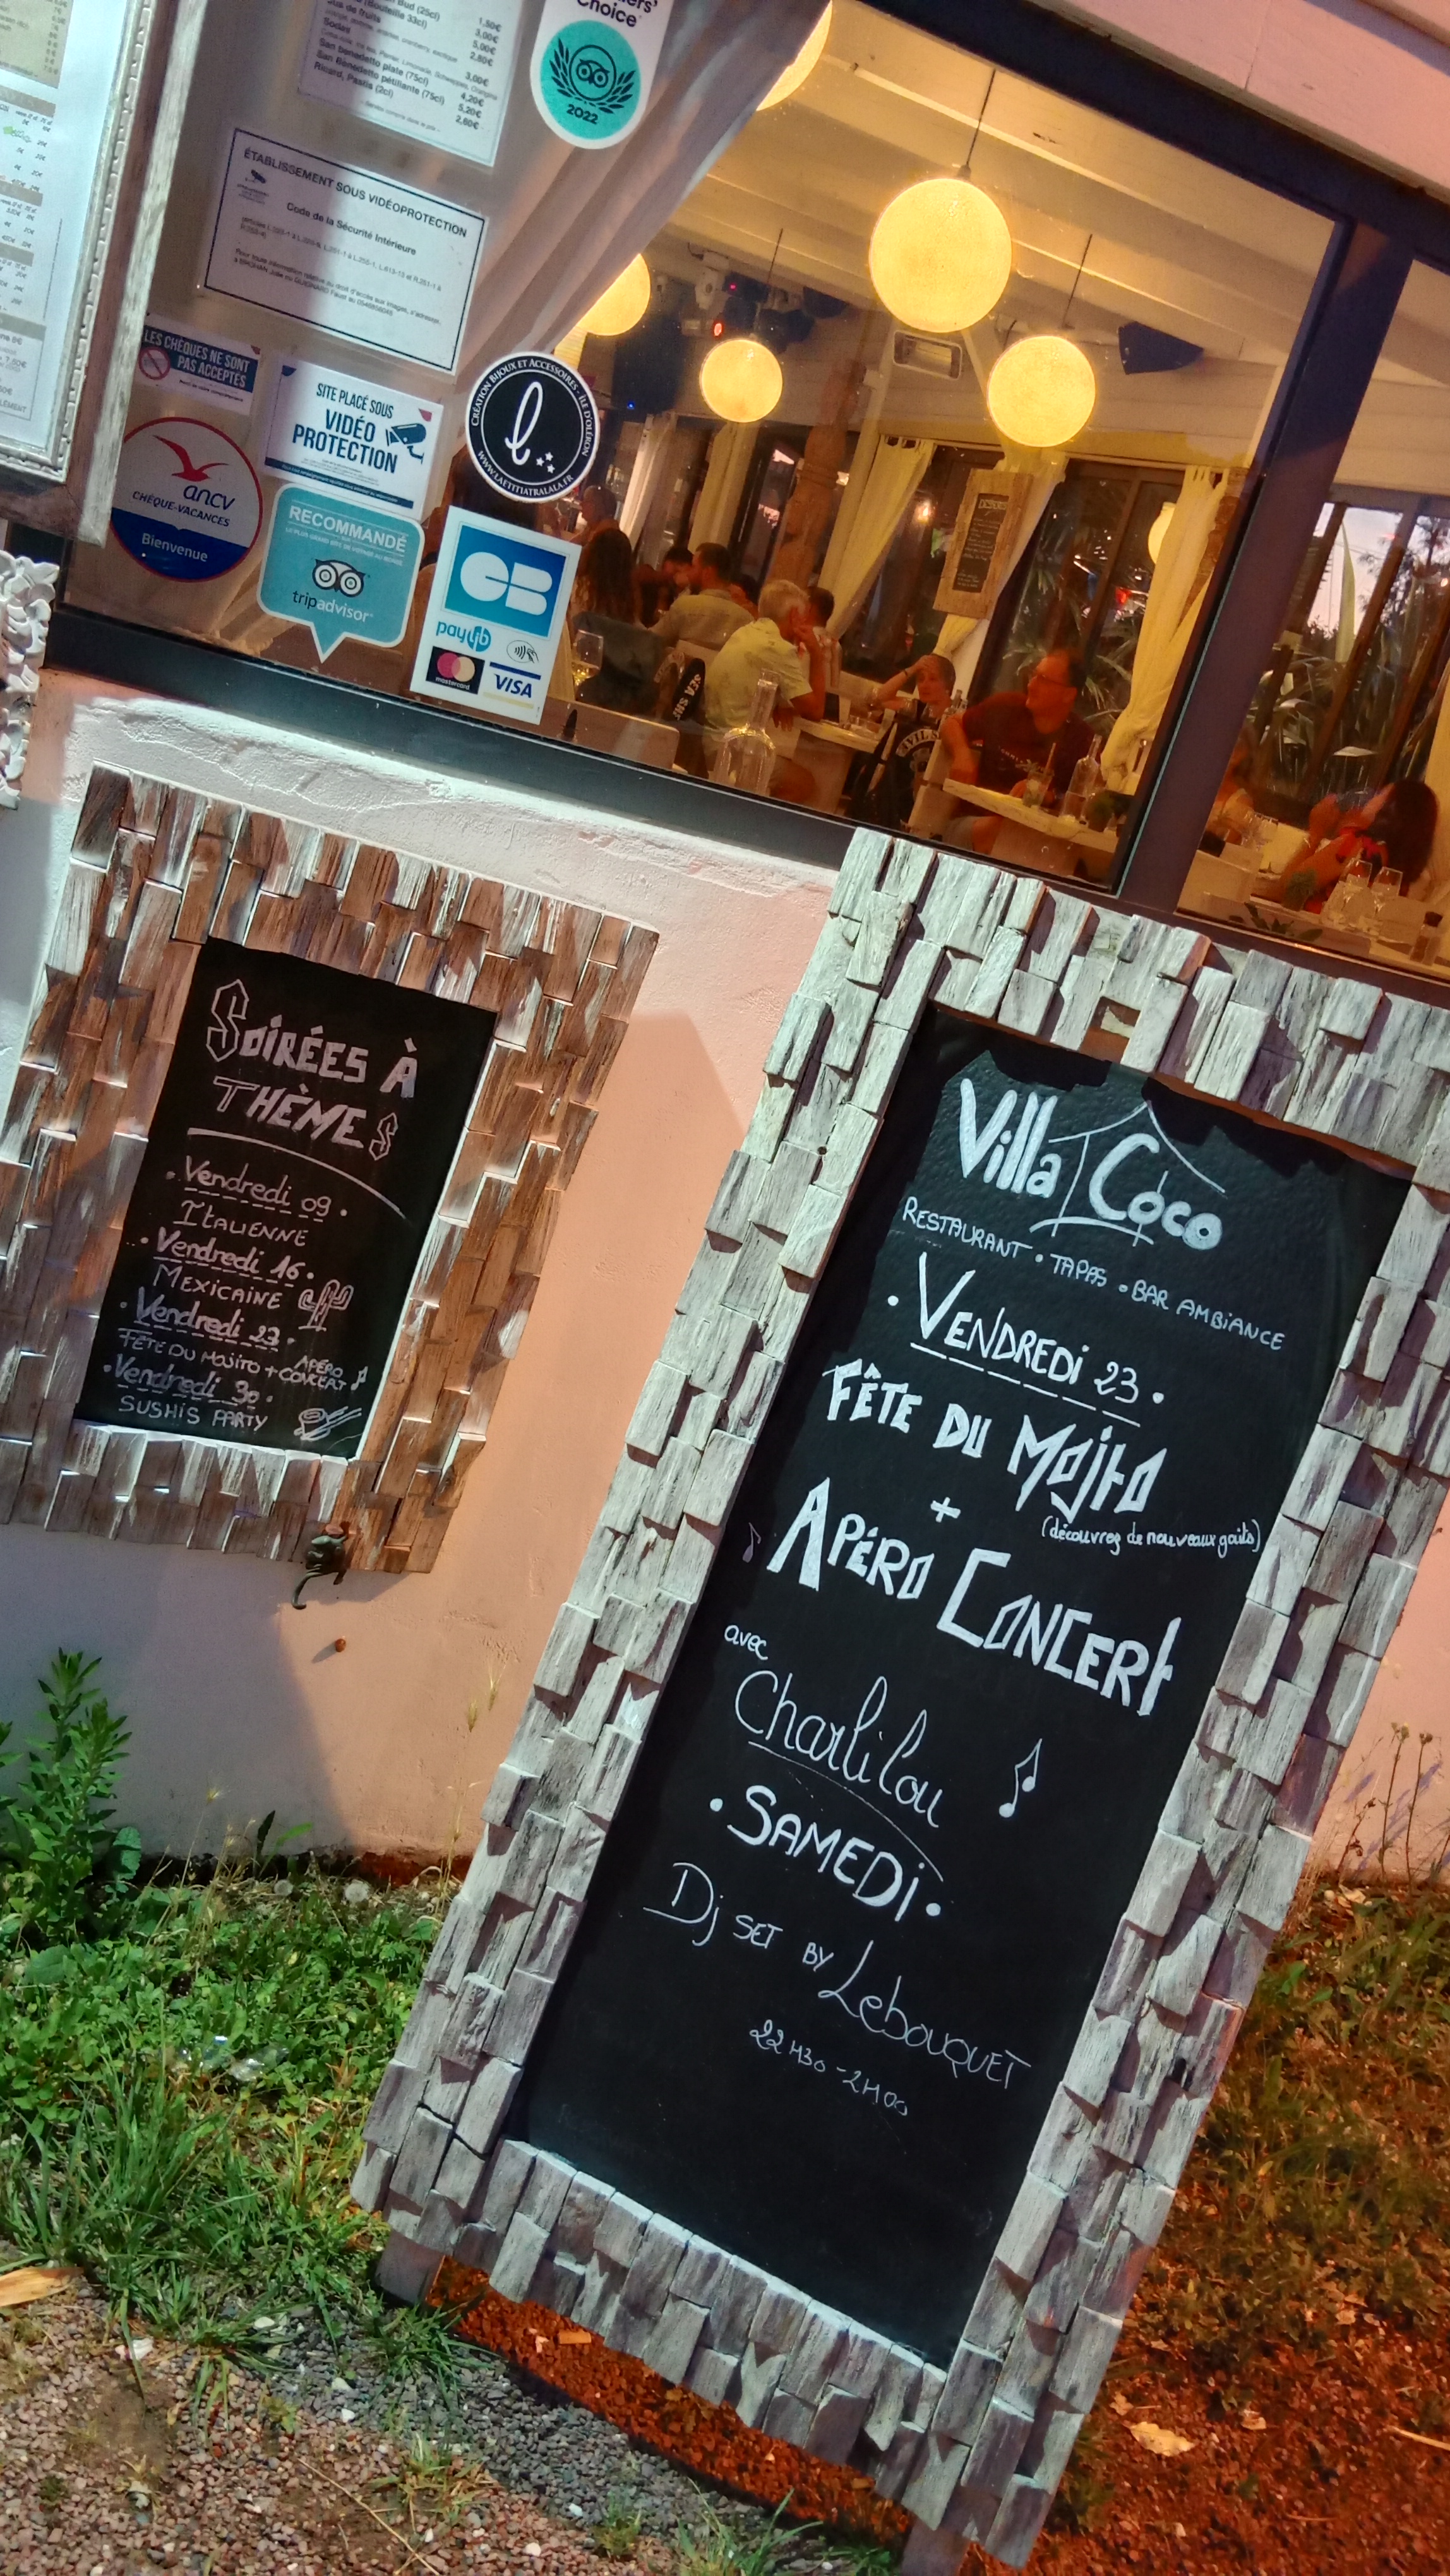 Bud (25cl)
(Bouteille 33cl)
jus de fruits
Sodas
San benedetto plate (75cl)
San Benedetto pétillante (75cl)
Ricard, Pastis (2cl)
1,50€
3,00€
5,00€
2,80€
3,00€
4,20€
5,20€
2,60€
Choice
2022
ÉTABLISSEMENT SOUS VIDÉOPROTECTION
Code de la Sécurité Intérieure
LES CHÈQUES NE SONT
PAS ACCEPTÉS
SITE PLACÉ SOUS
VIDÉO
PROTECTION
CRÉATION BIJOUX ET ACCESSOIRES - ÎLE D'OLÉRON
WWW.LAETITIATRALALA.FR
ancv
CHÈQUE-VACANCES
Bienvenue
RECOMMANDÉ
tripadvisor
CB
paylib
mastercard
VISA
SOIRÉES À
THÈMES
. Vendredi 09 .
ITALIENNE
. Vendredi 16 .
MEXICAINE
. Vendredi 23 .
FÊTE DU MOJITO + APÉRO
CONCERT
. Vendredi 30 .
SUSHIS PARTY
Villa Coco
RESTAURANT • TAPAS • BAR AMBIANCE
• VENDREDI 23 •
FÊTE DU MOJITO
+
(découvrez de nouveaux goûts)
APÉRO CONCERT
avec
Charlilou
• SAMEDI •
Dj SET BY Lebouquet
22H30 - 2H00